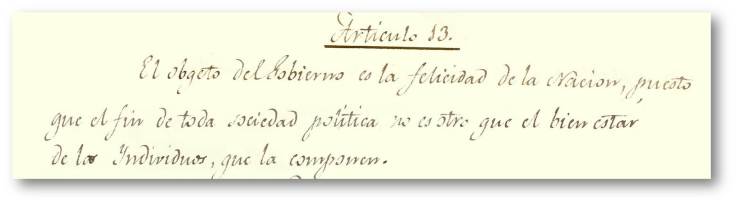 Articulo 13.
El obgeto del Gobierno es la felicidad de la Nacion, puesto
que el fin de toda sociedad política no es otro que el bien estar
de los Individuos, que la componen.